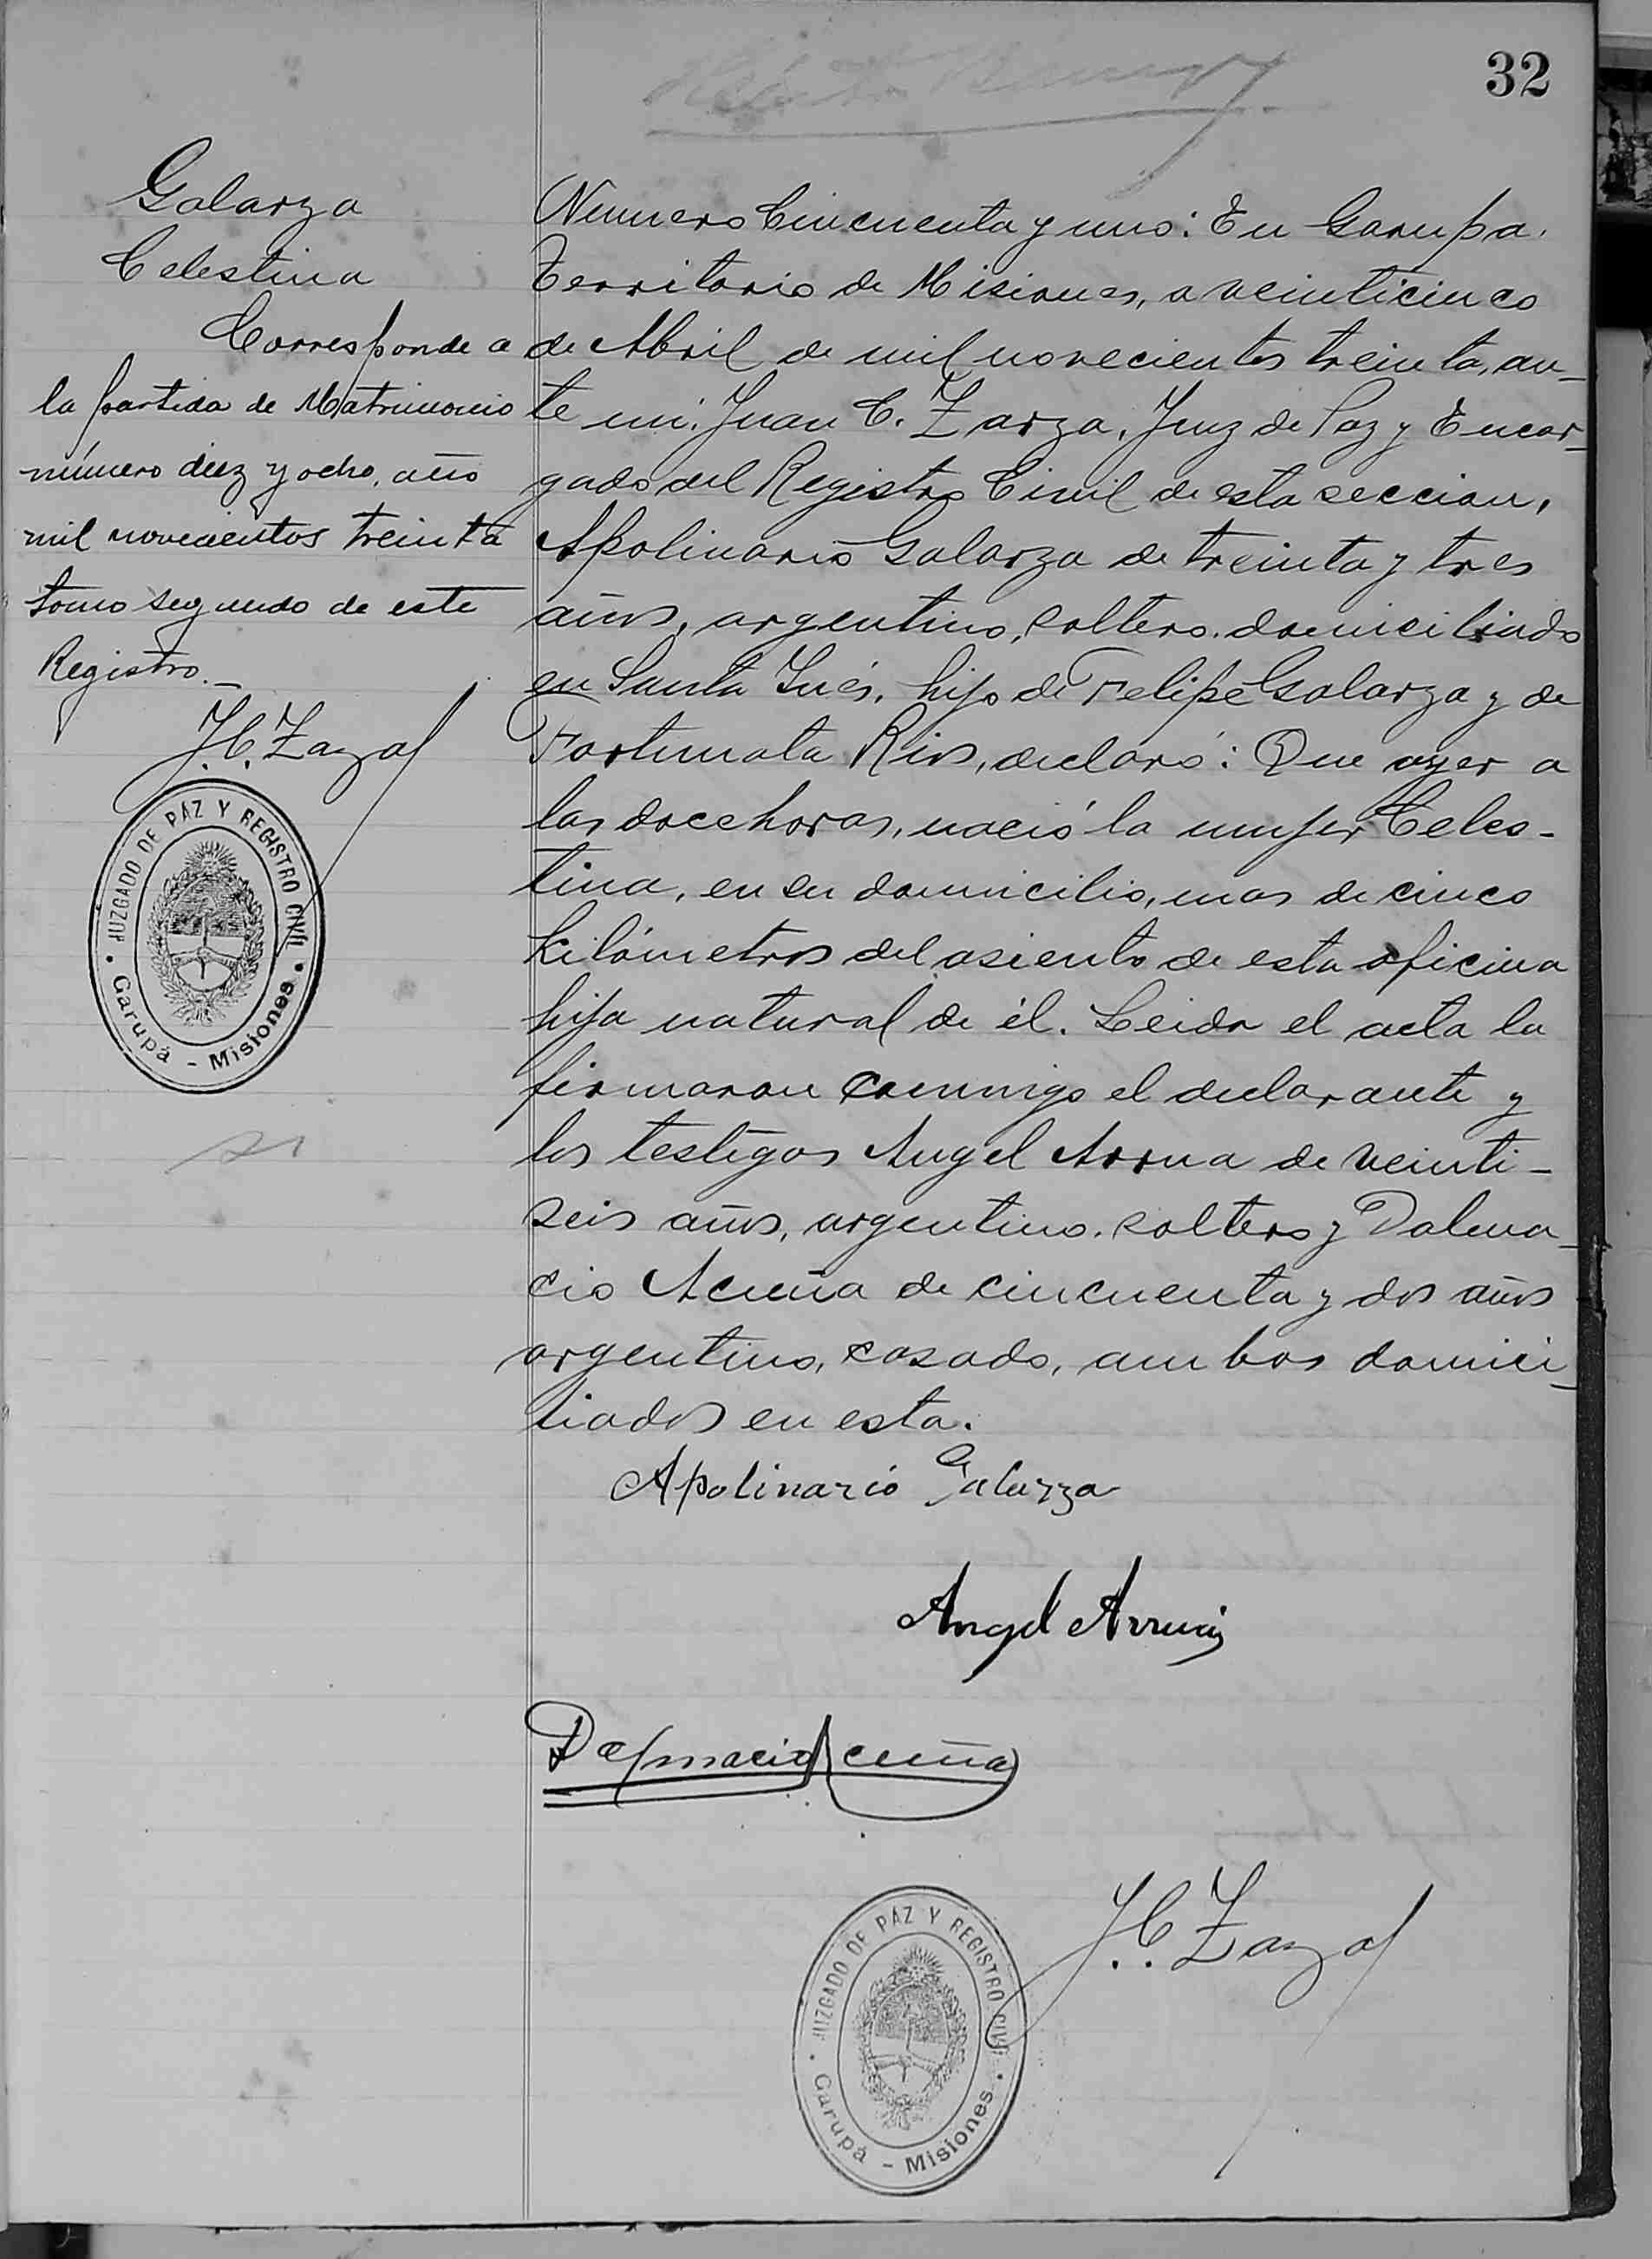 32
Galarza
Celestina
Corresponde a
la partida de Matrimonio
número diez y ocho, año
mil novecientos treinta
tomo segundo de este
Registro._
J.C. Zarza
JUZGADO DE PAZ Y REGISTRO CIVIL
Garupá - Misiones
Numero Cincuenta y uno: En Garupa.
Territorio de Misiones, a veinticinco
de Abril de mil novecientos treinta, an_
te mi. Juan C. Zarza, Juez de Paz y Encar_
gado del Registro Civil de esta seccion,
Apolinario Galarza de treinta y tres
años, argentino, soltero. domiciliado
en Santa Inés, hijo de Felipe Galarza y de
Fortunata Rios, declaró: Que ayer a
las doce horas, nació la mujer Celes-
tina, en su domicilio, mas de cinco
kilómetros del asiento de esta oficina
hija natural de él. Leida el acta la
firmaron conmigo el declarante y
los testigos Angel Arrua de veinti-
seis años, argentino. soltero y Dalma_
cio Acuña de cincuenta y dos años
argentino, casado, ambos domici_
liados en esta.
Apolinario Galarza
Angel Arrua
Dalmacio Acuña
J.C. Zarza
JUZGADO DE PAZ Y REGISTRO CIVIL
Garupá - Misiones